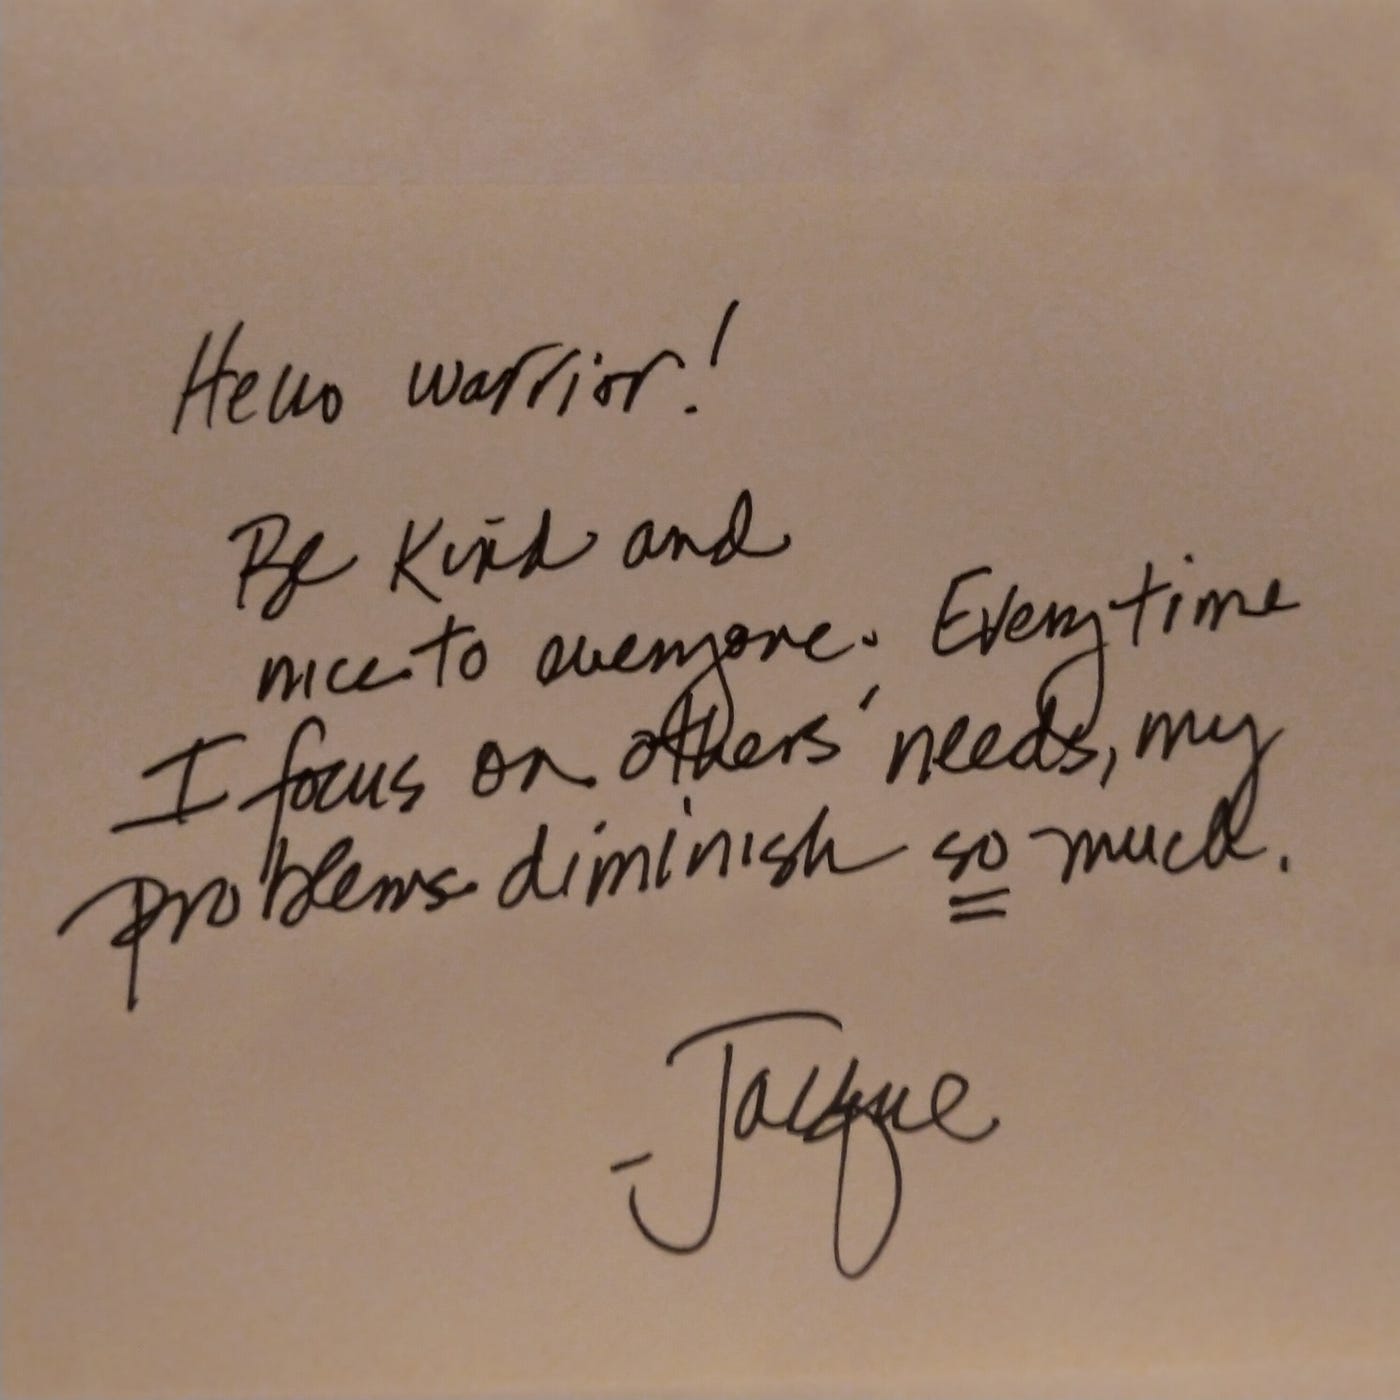 Hello warrior!
Be kind and
nice to everyone. Everytime
I focus on others' needs, my
problems diminish so much.
- Jacque